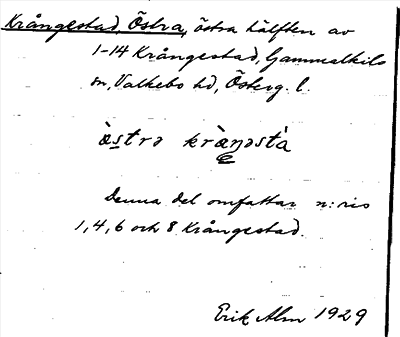 Krångestad, Östra, östra hälften av
1-14 Krångestad, Gammalkils
sn, Valkebo hd, Österg. l.
östrə kràŋəsta
Denna del omfattar n:ris
1, 4, 6 och 8 Krångestad.
Erik Alm 1929